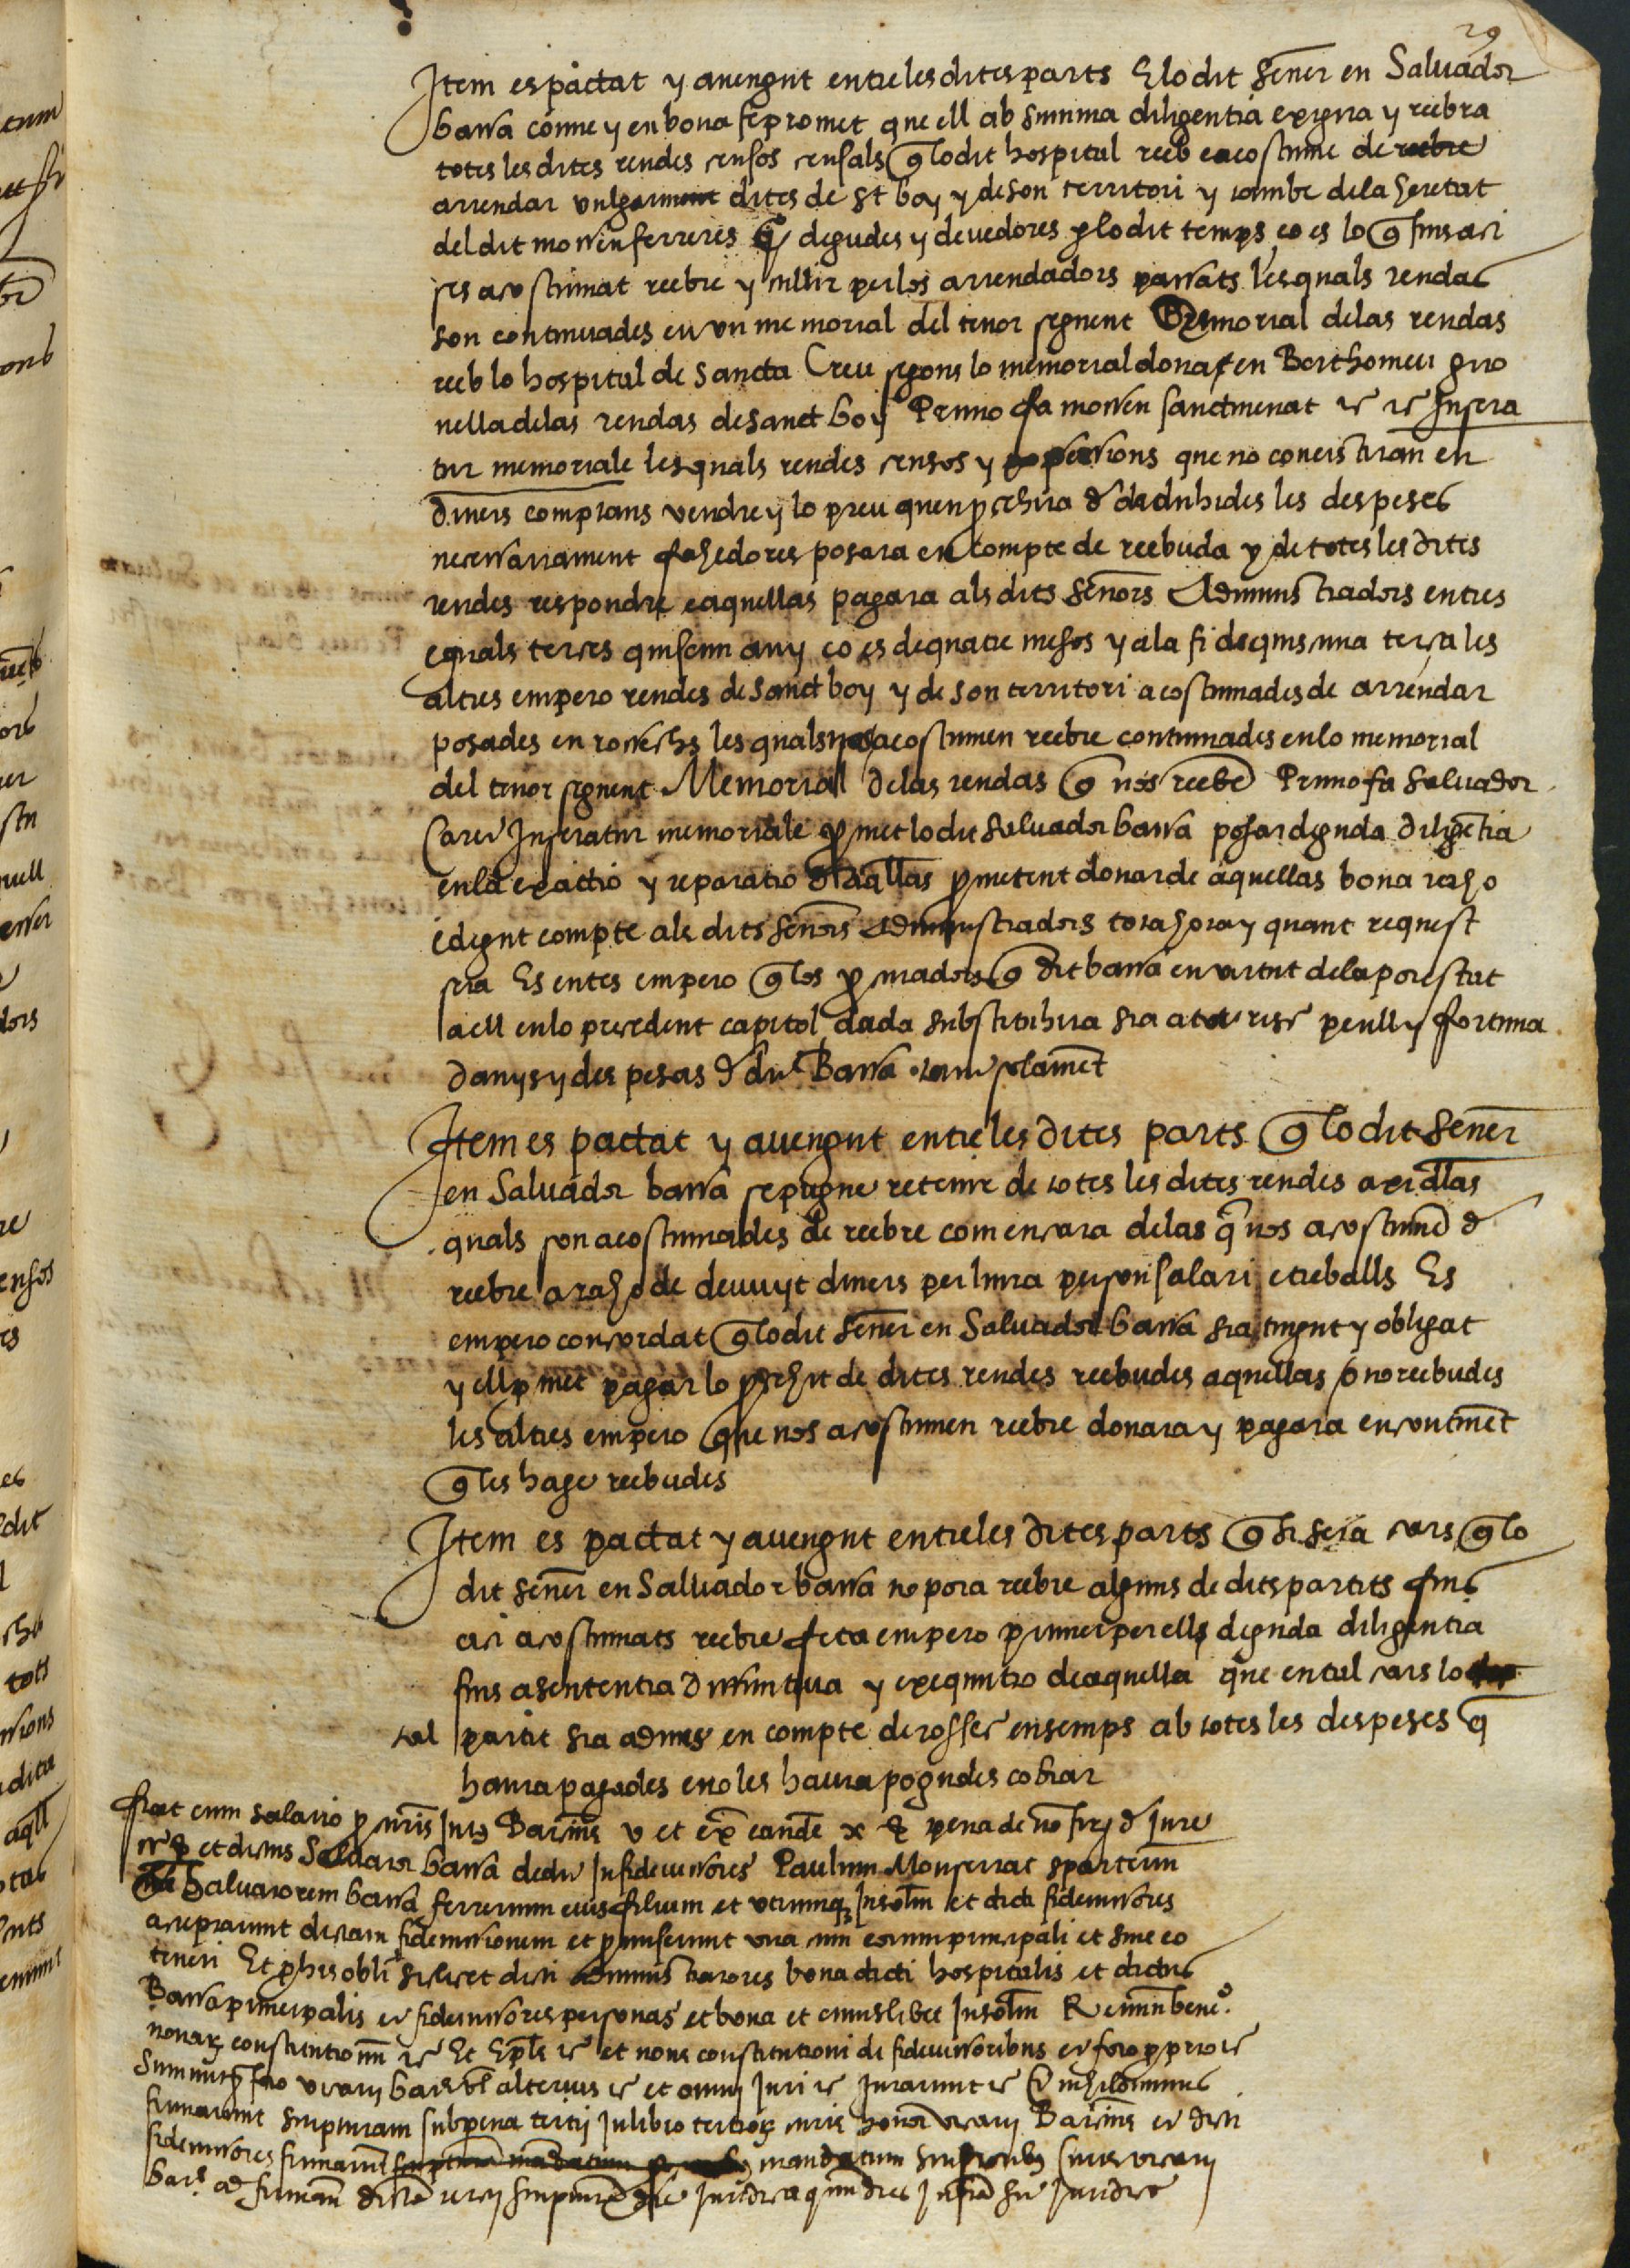 29
Item es pactat y avengut entre les dites parts E lo dit señer en Salvador
barra conve y en bona fe promet que ell ab summa diligentia exigira y reebra
totes les dites rendes censos censals q̄ lo dit hospital reeb e acostume de reebre
arrendar vulgarment dites de st boy y de son territori y tambe de la heretat
del dit mossen ferreres degudes y devedores p lo dit temps ço es lo q̄ fins aci
ses acostumat reebre y cullir per los arrendadors passats les quals rendas
son continuades en un memorial del tenor seguent Memorial de las rendas
reeb lo hospital de Sancta Creu segons lo memorial dona en Barthomeu giro
nella de las rendas de sanct boy Primo fa mossen sanctmenat
tur memoriale les quals rendes censos y possessions que no concistiran en
diners comptans vendre y lo preu quen procehira deduhides les despeses
necessariament fahedores posara en compte de reebuda y de totes les dites
rendes respondre e aquellas pagara als dits señors Administradors en tres
eguals terces quiscun any ço es de quatre mesos y a la fi de quiscuna terça les
altres empero rendes de sanct boy y de son territori acostumades de arrendar
posades en rossechs les quals nos acostumen reebre continuades en lo memorial
del tenor seguent Memorial de las rendas q̄ nos reebē Primo fa Salvador
Inseratur memoriale pmet lo dit Salvador barra posar deguda diligētia
en la exactio y reparatio de aq̄llas pmetent donar de aquellas bona raho
e degut compte als dits señors Administradors tota hora y quant request
sera Es entes empero q̄ los pcuradors q̄ dit barra en virtut de la potestat
a ell en lo precedent capitol dada substituhira sia a tot risc perill y fortuna
danys y despesas de dit Barra tant solamēt
Item es pactat y avengut entre les dites parts q̄ lo dit señer
en Salvador barra se pugue retenir de totes les dites rendes
quals son acostumades de reebre com encara de las q̄ nos acostumē de
reebre a raho de devuyt diners per liura per son salari e treballs Es
empero concordat q̄ lo dit señer en Salvador barra sia tingut y obligat
y ell pmet pagar lo pcehit de dites rendes reebudes aquellas o no reebudes
les altres empero que nos acostumen reebre donara y pagara encontinēt
q̄ les hage reebudes
Item es pactat y avengut entre les dites parts q̄ si sera cars q̄ lo
dit señer en Salvador barra no pora reebre alguns de dits partits fins
aci acostumats reebre feta empero primer per ells deguda diligentia
fins a sententia diffinitiva y exequutio de aquella que en tal cars lo
tal partit sia admes en compte de rossec ensemps ab totes les despeses q̄
haura pagades e no les haura pogudes cobrar
fiat cum salario pcuris Barcīns et
et dictus Salvator barra dedit in fideiussores Paulum Monserrat sparterium
Salvatorem barra ferrerium eius filium et utrumq̄ insolm et dicti fideiussores
acceptarunt dictam fideiussionem et promiserunt una cum eorum principali et sine eo
teneri Et p his obliᵗ scilicet dicti administratores bona dicti hospitalis et dictus
Barra principalis et fideiussores personas et bona et cuiuslibet insolm Renun bene
novar constitutionū et Et Eple et nove constitutioni de fideiussoribus et foro pprio
alterius et omni juri Jurarunt
firmarunt scripturam sub pena tertii in libro tertior curie honor vicarii Barcīns et dicti
fideiussores firmarunt mandatum vicarii